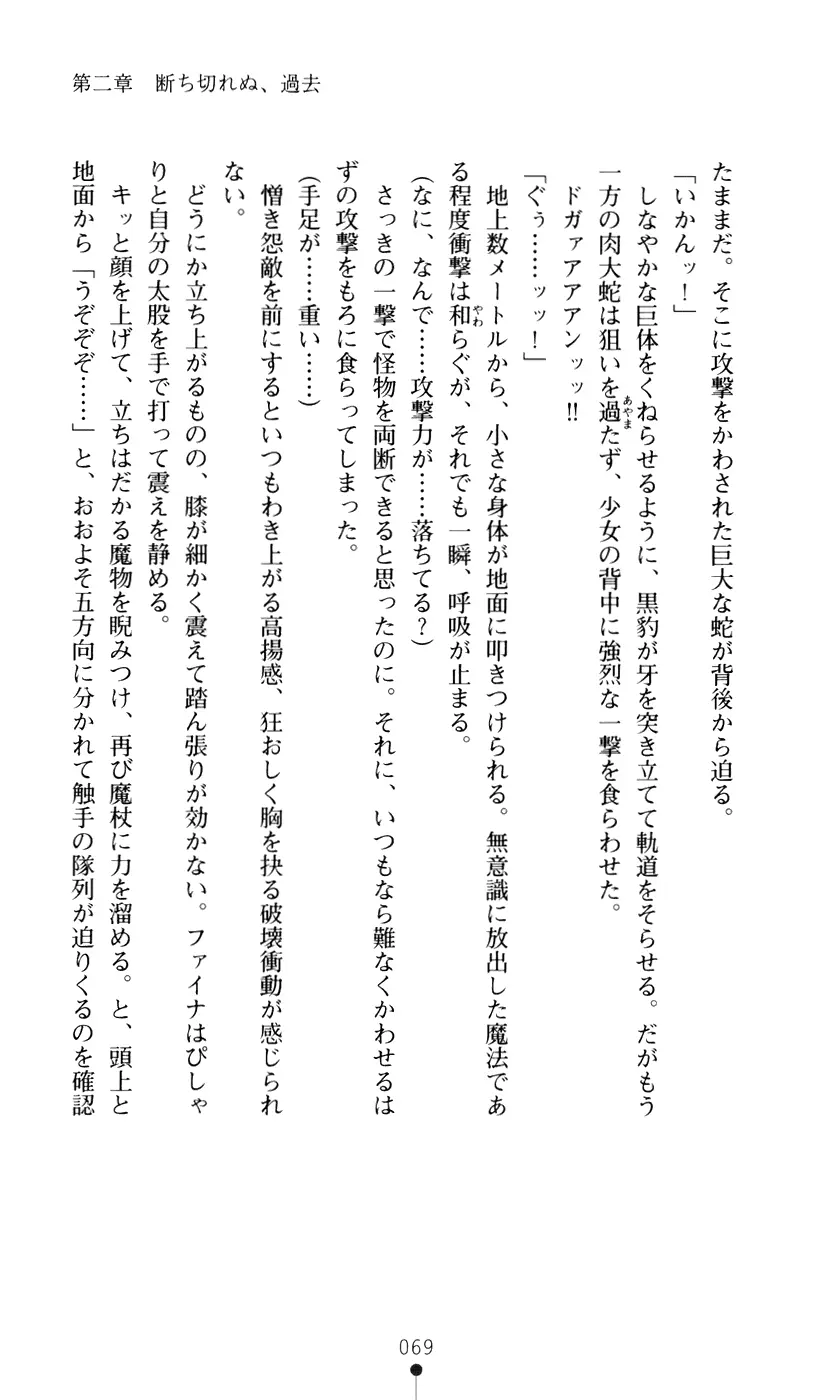 第二章　断ち切れぬ、過去
たままだ。そこに攻撃をかわされた巨大な蛇が背後から迫る。
「いかんッ！」
しなやかな巨体をくねらせるように、黒豹が牙を突き立てて軌道をそらせる。だがもう
一方の肉大蛇は狙いを過たず、少女の背中に強烈な一撃を食らわせた。
あやま
ドガァアアアンッッ‼
「ぐぅ……ッッ！」
地上数メートルから、小さな身体が地面に叩きつけられる。無意識に放出した魔法であ
る程度衝撃は和らぐが、それでも一瞬、呼吸が止まる。
やわ
（なに、なんで……攻撃力が……落ちてる？）
さっきの一撃で怪物を両断できると思ったのに。それに、いつもなら難なくかわせるは
ずの攻撃をもろに食らってしまった。
（手足が……重い……）
憎き怨敵を前にするといつもわき上がる高揚感、狂おしく胸を抉る破壊衝動が感じられ
ない。
どうにか立ち上がるものの、膝が細かく震えて踏ん張りが効かない。ファイナはぴしゃ
りと自分の太股を手で打って震えを静める。
キッと顔を上げて、立ちはだかる魔物を睨みつけ、再び魔杖に力を溜める。と、頭上と
地面から「うぞぞぞ……」と、おおよそ五方向に分かれて触手の隊列が迫りくるのを確認
069